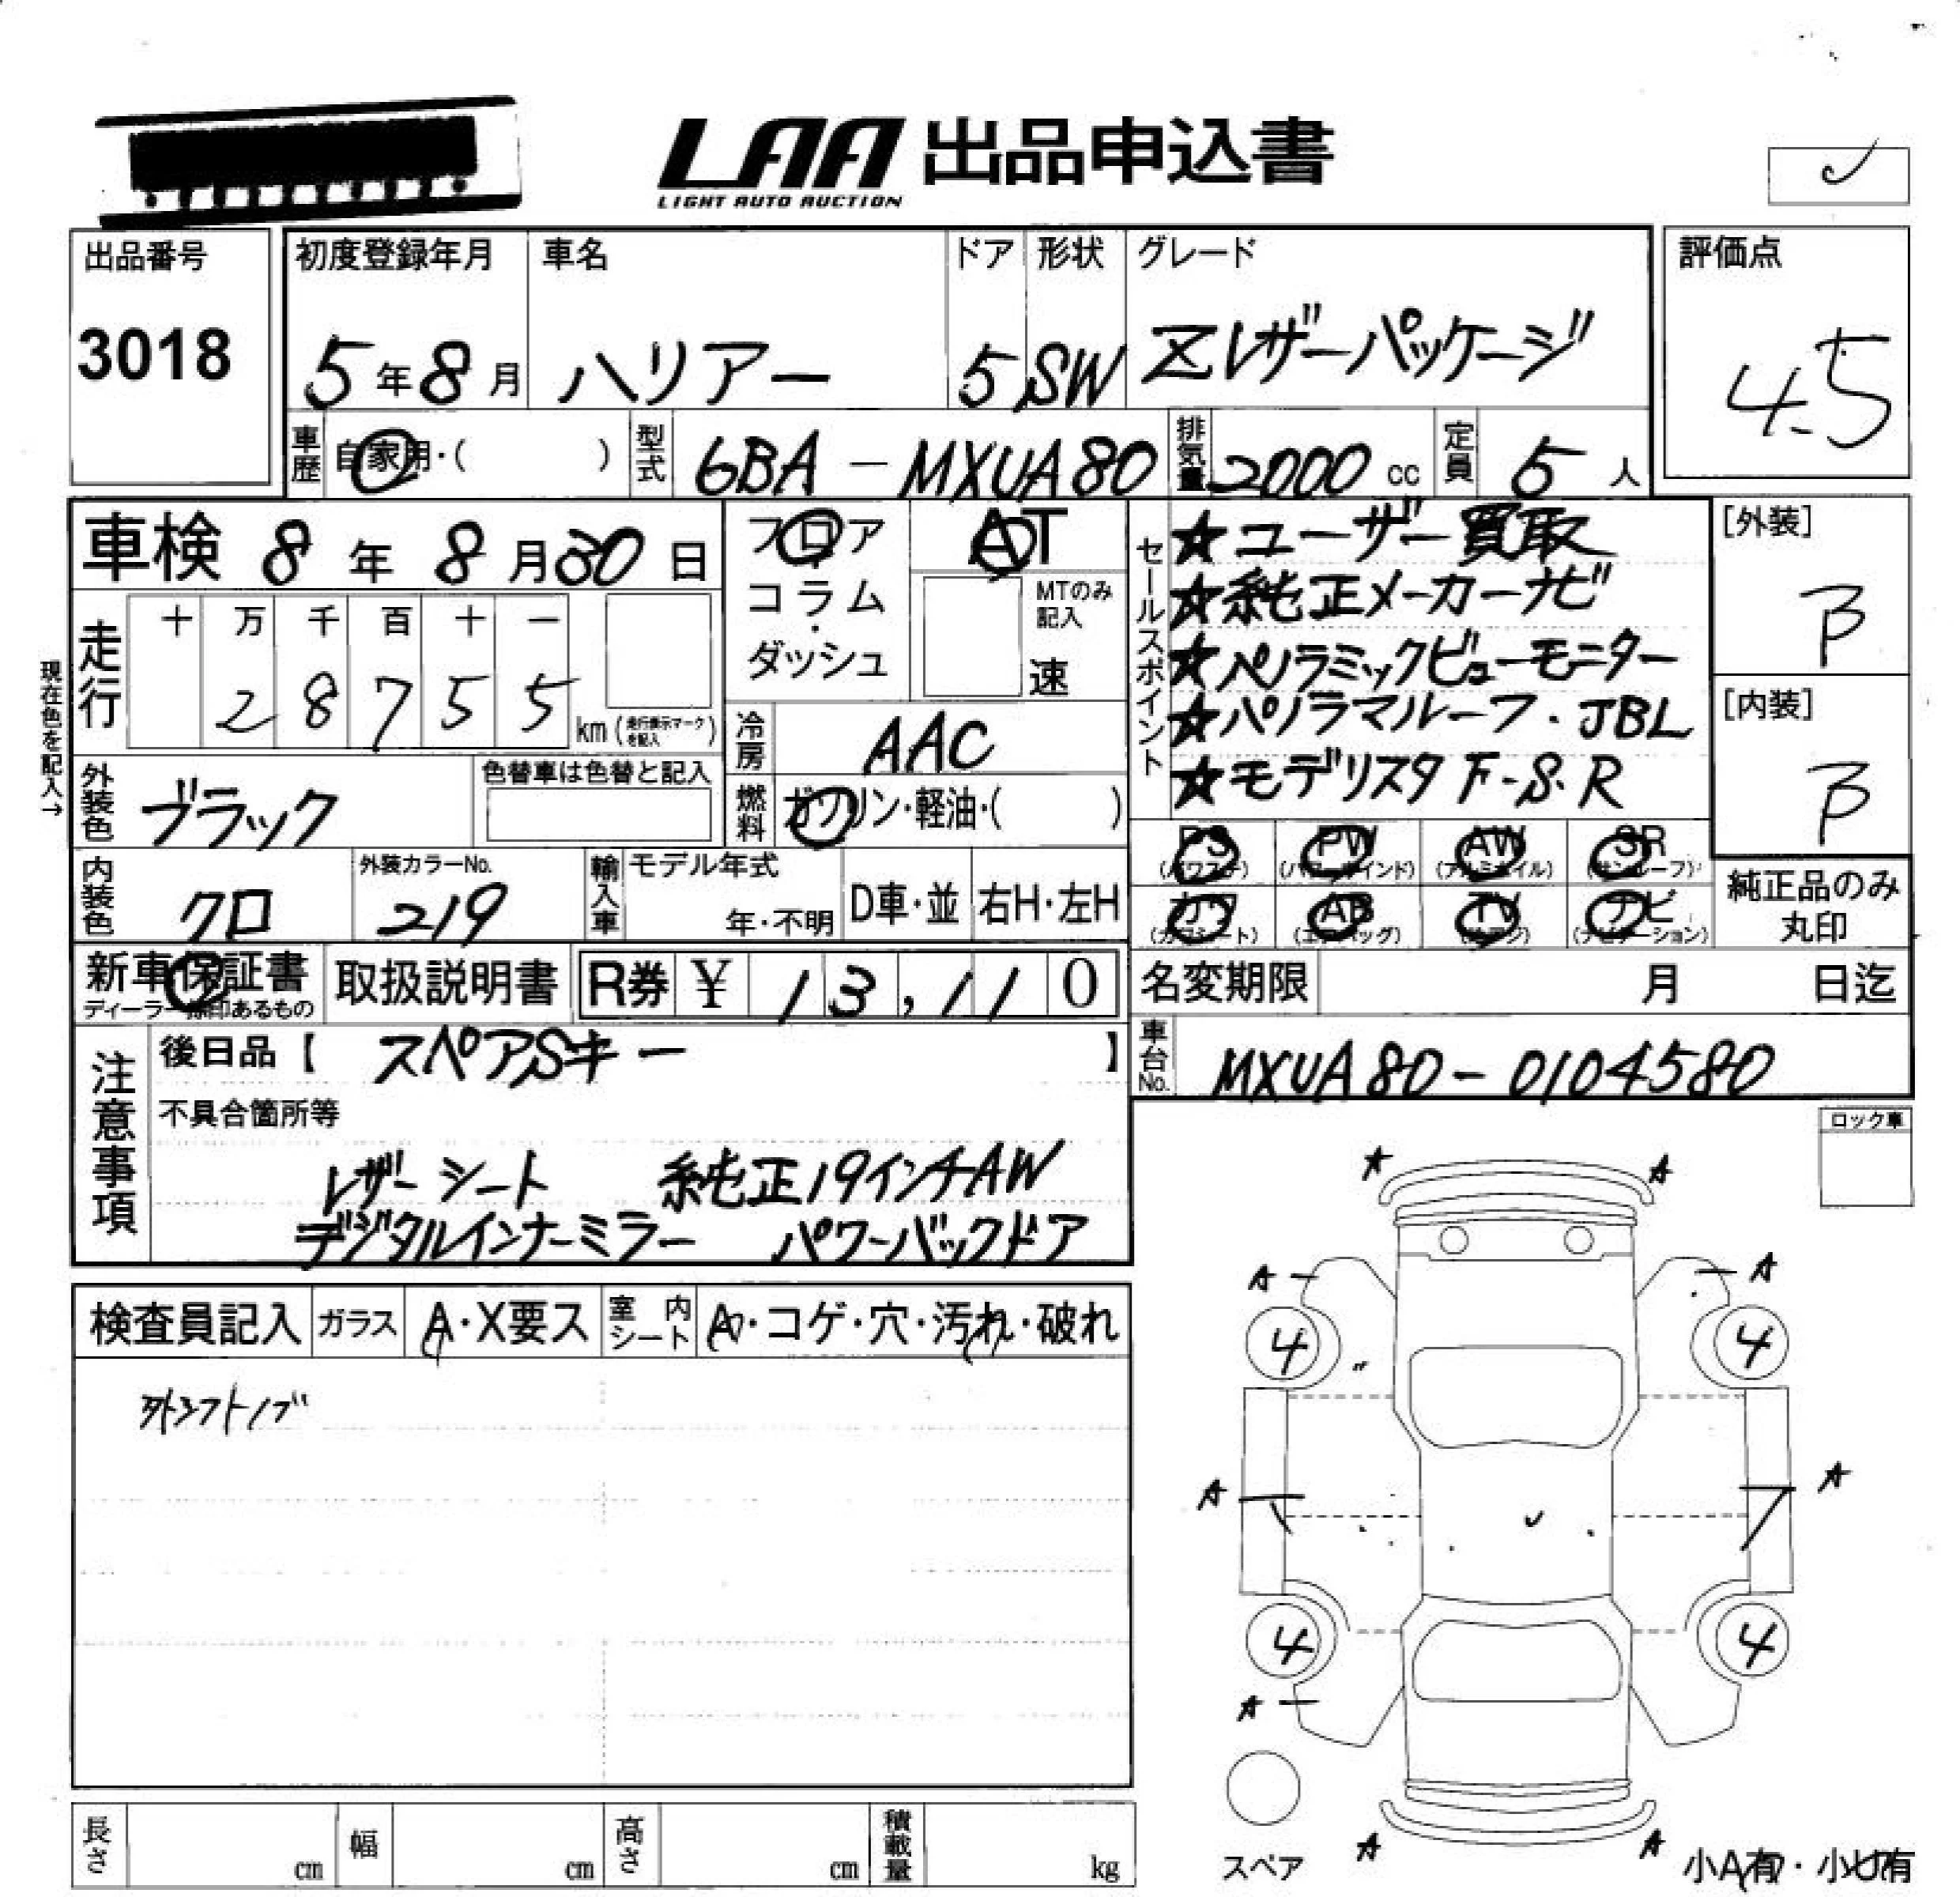 LAA 出品申込書
LIGHT AUTO AUCTION
出品番号
3018
初度登録年月 車名 ドア 形状 グレード
5年8月 ハリアー 5 SW Zレザーパッケージ
評価点
4.5
車歴 自家用・( ) 型式 6BA-MXUA80 排気量 2000 cc 定員 5人
車検 8年8月30日
フロア・コラム・ダッシュ
AT
MTのみ記入
速
セールスポイント
★ユーザー買取
★純正メーカーナビ
★パノラミックビューモニター
★パノラマルーフ・JBL
★モデリスタF-S.R
[外装]
B
[内装]
B
現在色を記入→
走行 十 万 千 百 十 一
28755 km (走行表示マークを記入)
冷房 AAC
外装色 ブラック
色替車は色替と記入
燃料 ガソリン・軽油・( )
内装色 クロ
外装カラーNo.
219
輸入車 モデル年式
年・不明 D車・並 右H・左H
PS PW AW SR
(パワステ) (パワーウインド) (アルミホイル) (サンルーフ)
カワ AB TV ナビ
(カワシート) (エアバッグ) (ナビゲーション)
純正品のみ
丸印
新車保証書 取扱説明書 R券 ¥ 13,110
ディーラー捺印あるもの
名変期限 月 日迄
車台No. MXUA80-0104580
注意事項
後日品【 スペアSキー 】
不具合箇所等
レザーシート 純正19インチAW
デジタルインナーミラー パワーバックドア
ロック車
検査員記入 ガラス A・X要ス 室内シート A・コゲ・穴・汚れ・破れ
外シフトノブ
A A
A A
4 4
A A
4 4
A
スペア
A A
小A有・小U有
長さ cm 幅 cm 高さ cm 積載量 kg